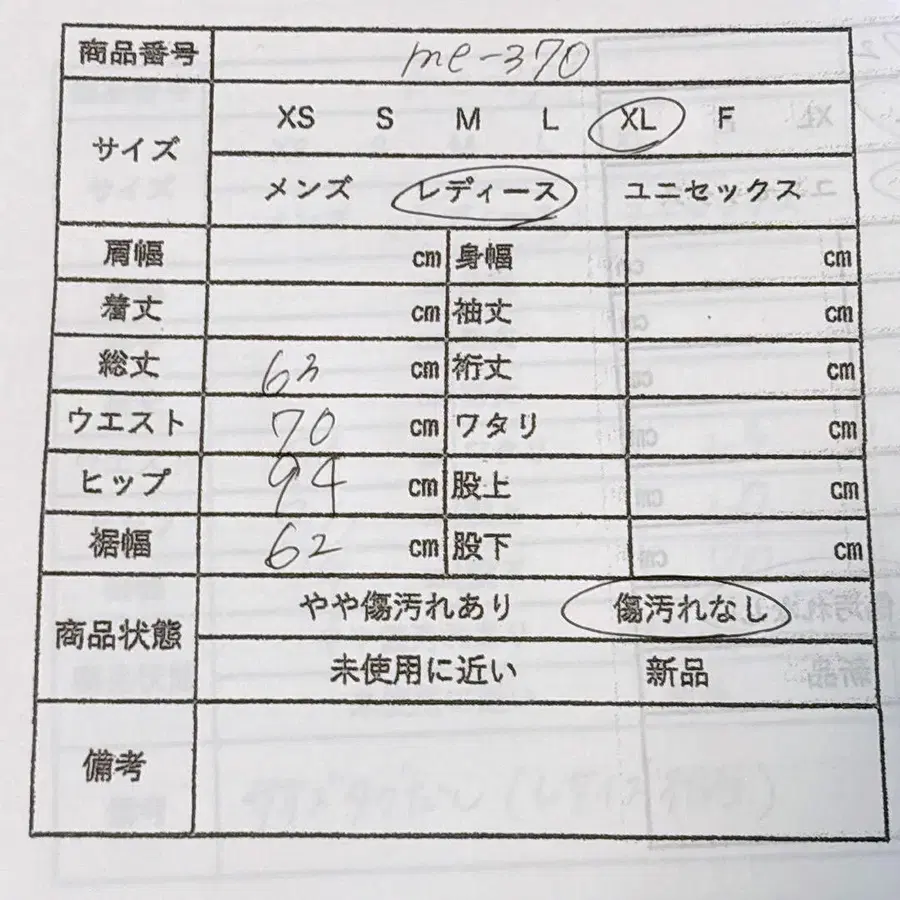 商品番号 me-370
サイズ XS S M L XL F
メンズ レディース ユニセックス
肩幅 cm 身幅 cm
着丈 cm 袖丈 cm
総丈 63 cm 裄丈 cm
ウエスト 70 cm ワタリ cm
ヒップ 94 cm 股上 cm
裾幅 62 cm 股下 cm
商品状態 やや傷汚れあり 傷汚れなし
未使用に近い 新品
備考